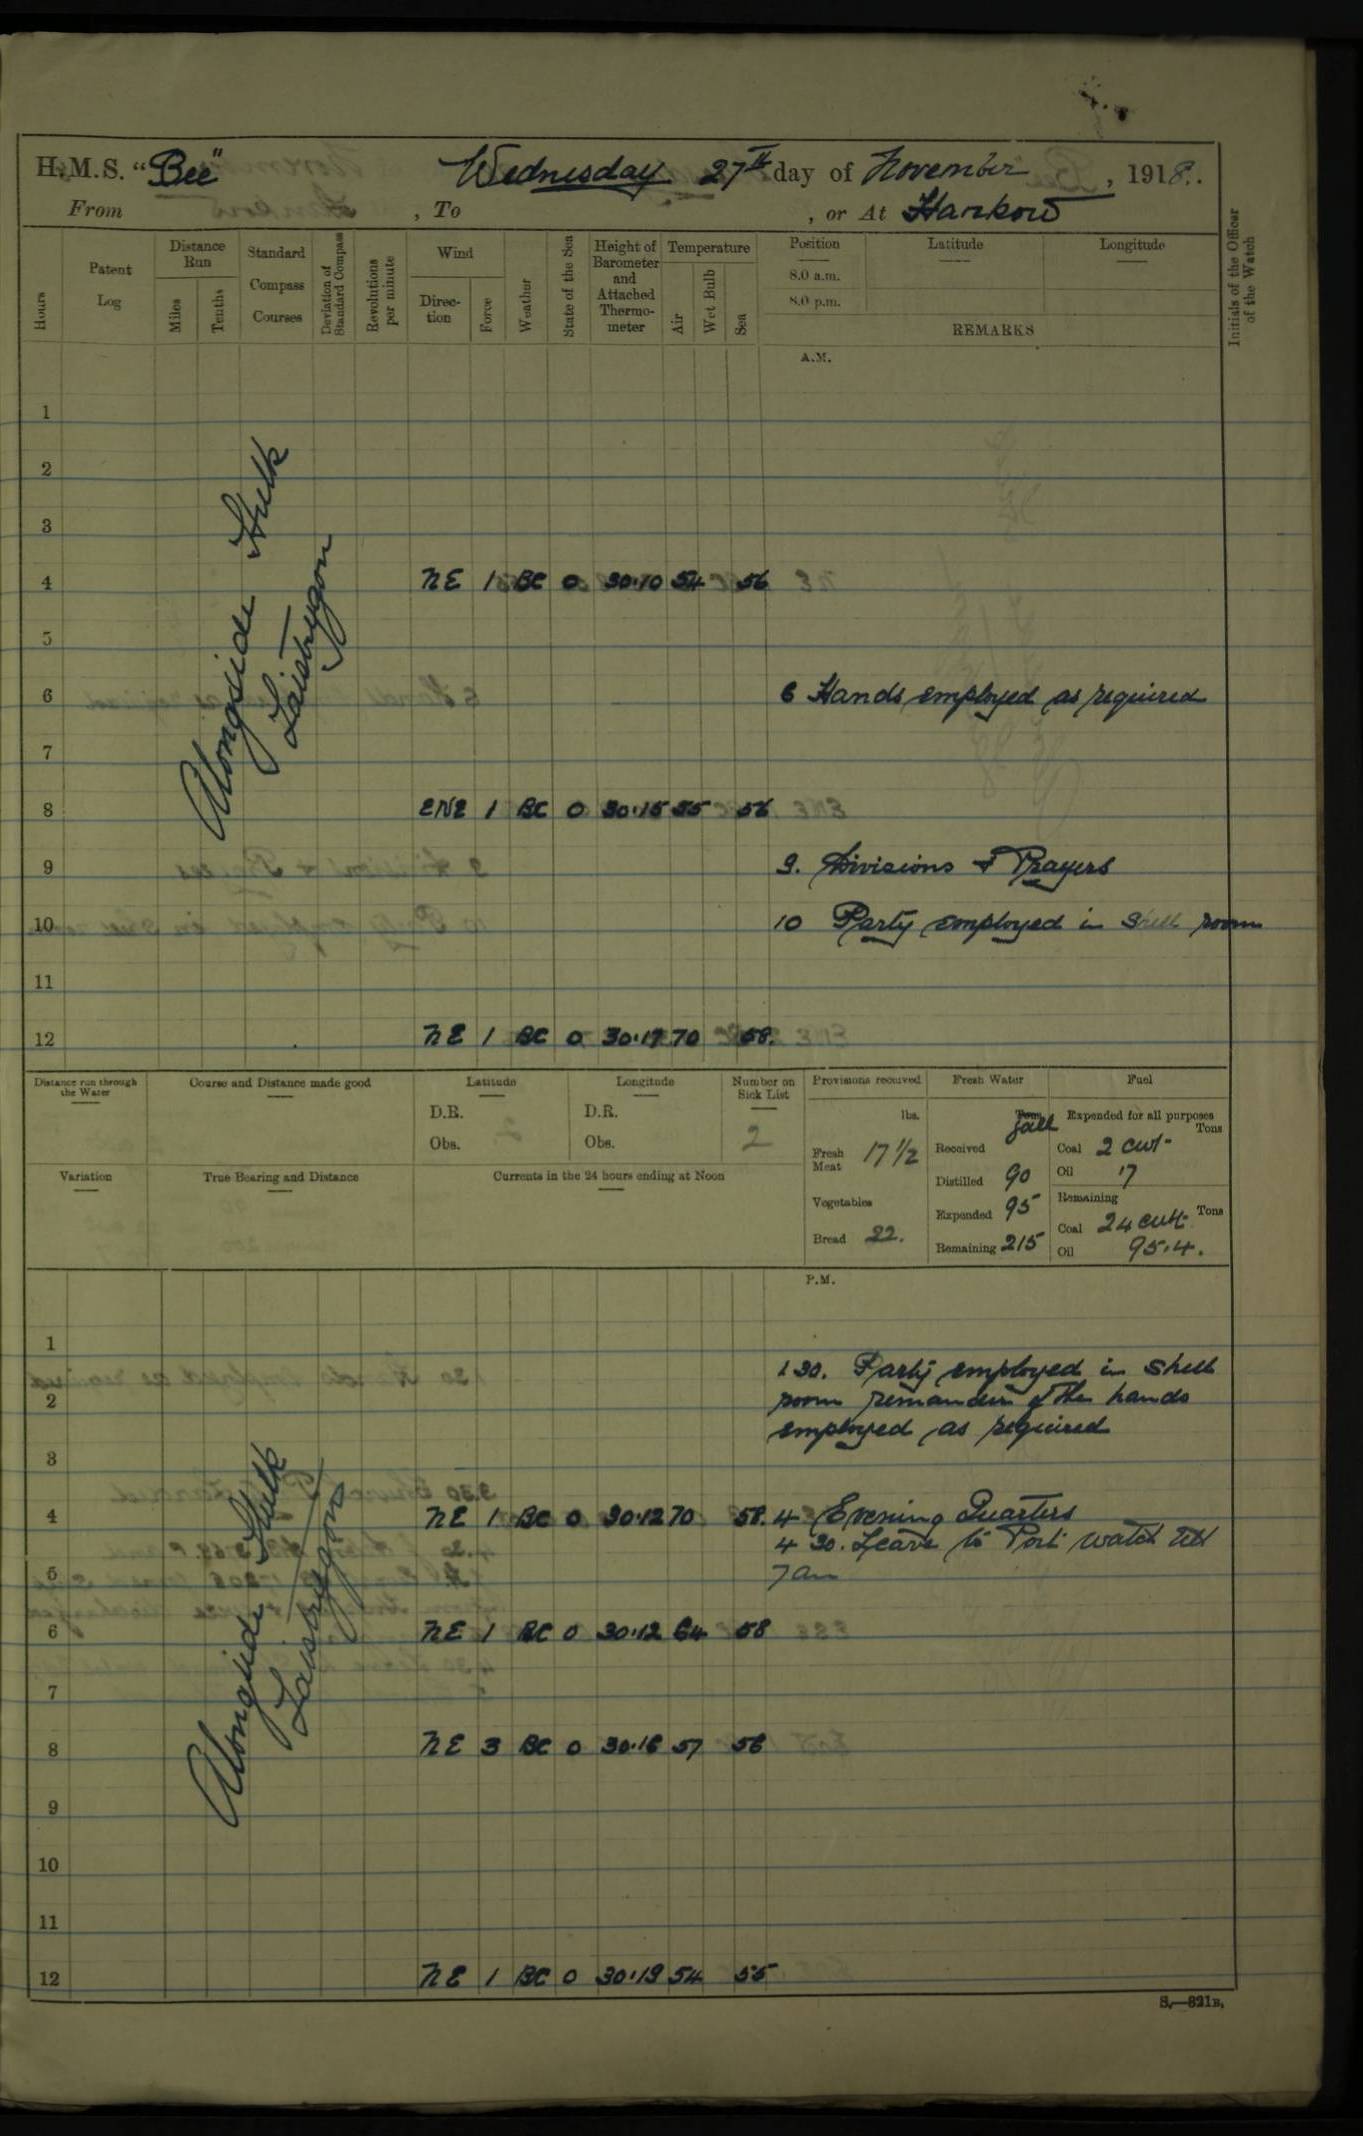 H.M.S. "Bee" Wednesday 27th day of November, 1918.
From , To , or At Hankow
Hours
Patent Log
Distance Run
Miles
Tenths
Standard Compass Courses
Deviation of Standard Compass
Revolutions per minute
Wind
Direction
Force
Weather
State of the Sea
Height of Barometer and Attached Thermometer
Temperature
Air
Wet Bulb
Sea
Position
8.0 a.m.
8.0 p.m.
Latitude
Longitude
REMARKS
Initials of the Officer of the Watch
A.M.
1
2
3
Alongside Hulk
Laistrygon
4 NE 1 BC 0 30.10 54 56
5
6 6 Hands employed as required
7
8 ENE 1 BC 0 30.15 55 56
9 9. Divisions & Prayers
10 10 Party employed in shell room
11
12 NE 1 BC 0 30.17 70 58.
Distance run through the Water
Course and Distance made good
Latitude
D.R.
Obs.
Longitude
D.R.
Obs.
Number on Sick List
2
Provisions received
lbs.
Fresh Meat 17 1/2
Vegetables
Bread 22.
Fresh Water
Tons
Galls
Received
Distilled 90
Expended 95
Remaining 215
Fuel
Expended for all purposes
Tons
Coal 2 cwt
Oil .7
Remaining
Tons
Coal 24 cwt.
Oil 95.4.
Variation
True Bearing and Distance
Currents in the 24 hours ending at Noon
P.M.
1
1 30. Party employed in shell
2 room remainder of the hands
employed as required
3
Alongside Hulk
Laistrygon
4 NE 1 BC 0 30.12 70 58. 4 Evening Quarters
4 30. Leave to Port watch till
5 7am
6 NE 1 BC 0 30.12 64 58
7
8 NE 3 BC 0 30.16 57 56
9
10
11
12 NE 1 BC 0 30.19 54 55
S.—321B.